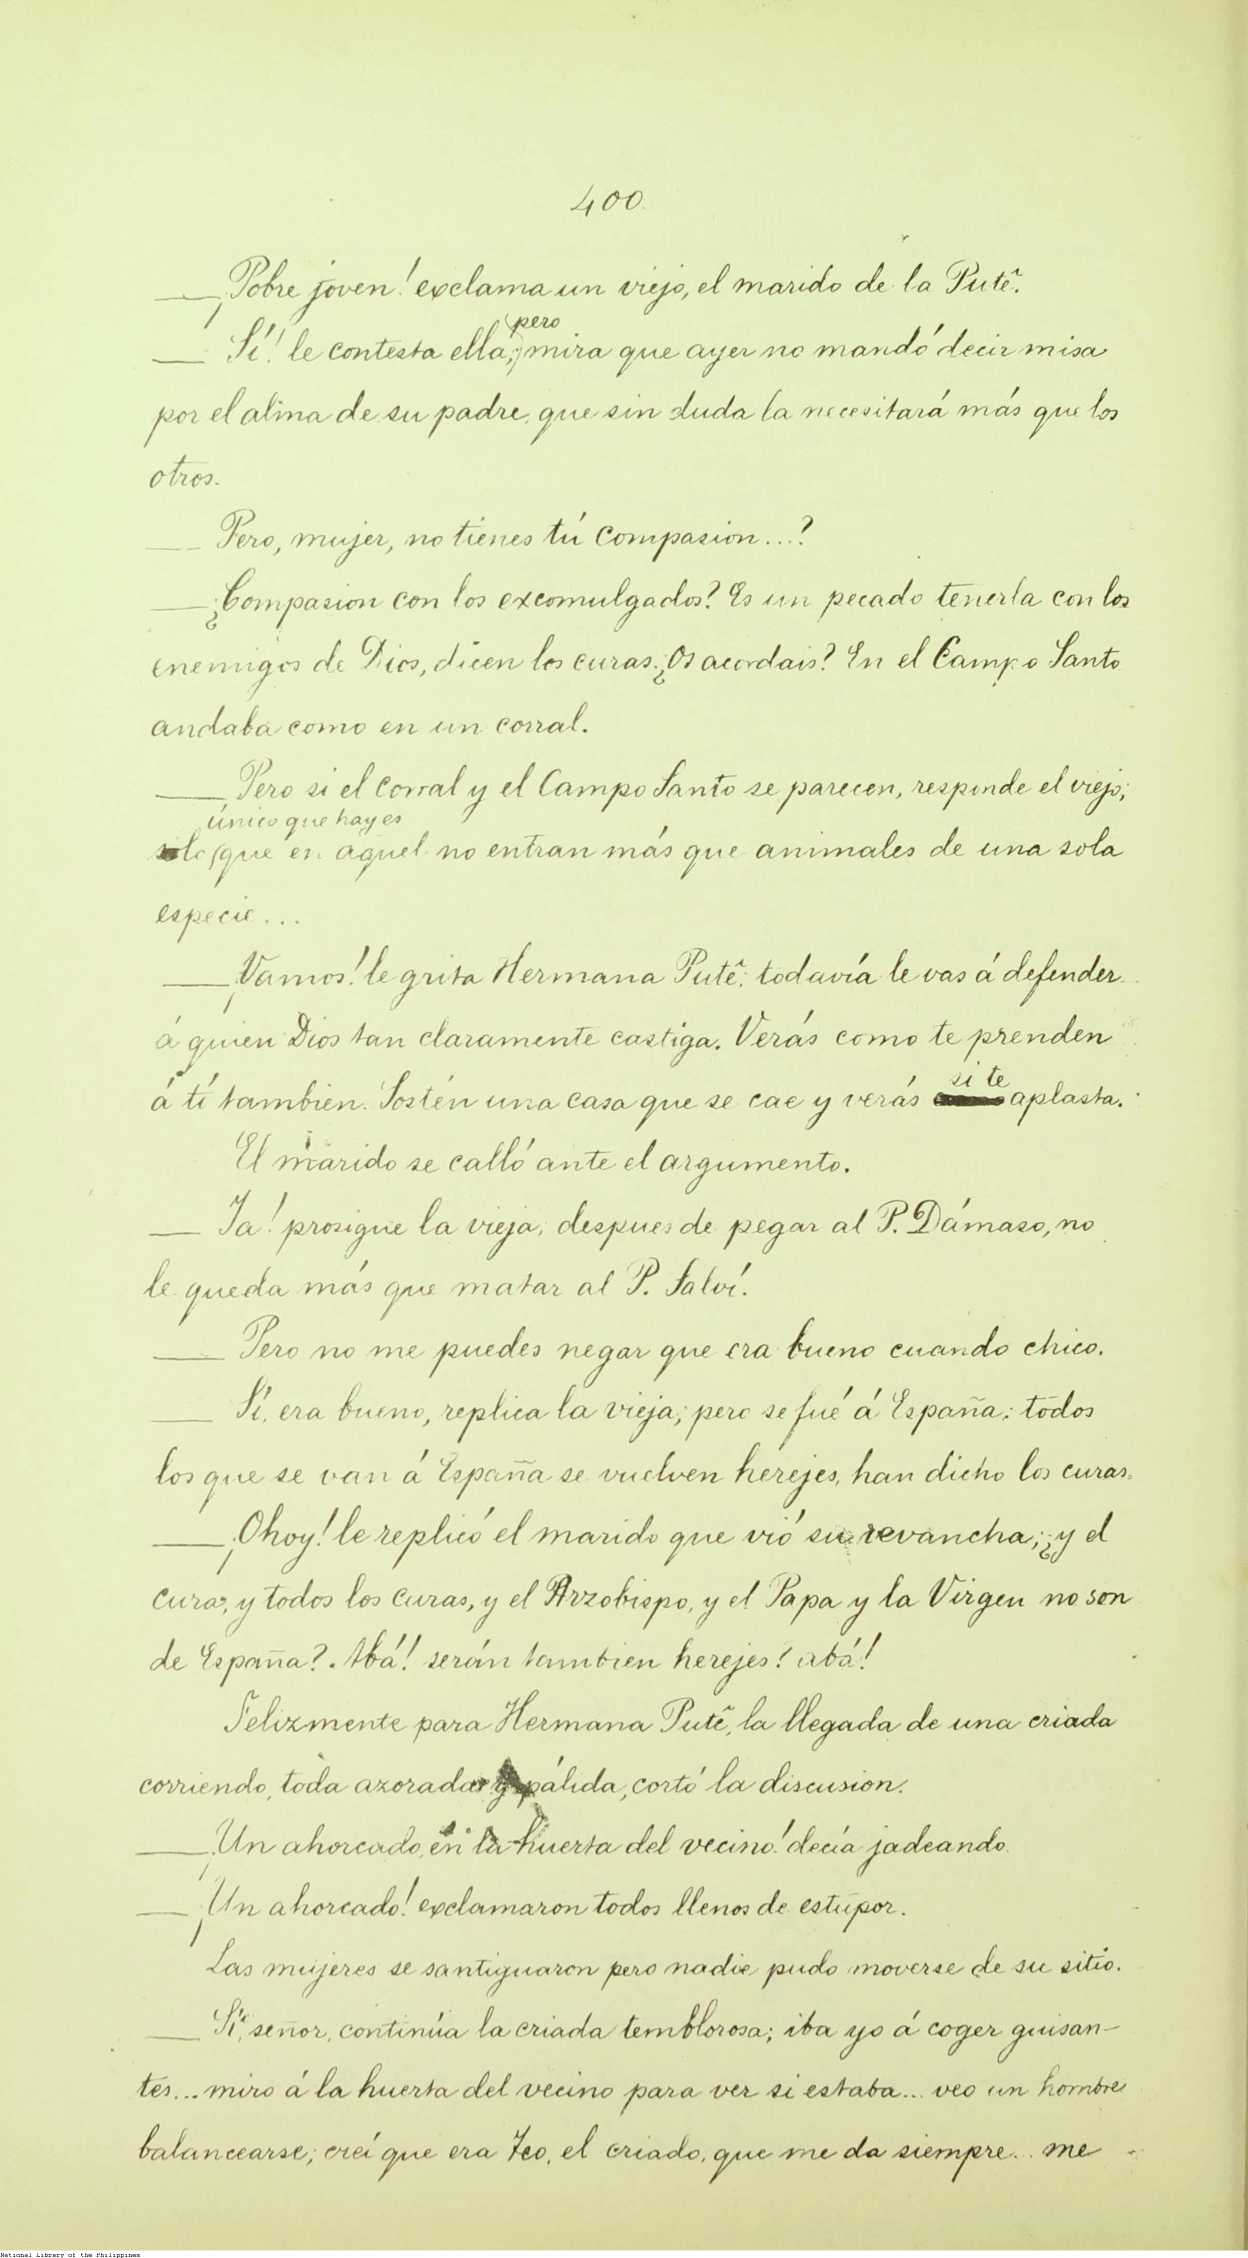 400
—¡Pobre joven! exclama un viejo, el marido de la Putê.
— Sí! le contesta ella; pero mira que ayer no mandó decir misa
por el alma de su padre, que sin duda la necesitará más que los
otros.
— Pero, mujer, no tienes tú compasion...?
—¿Compasion con los excomulgados? Es un pecado tenerla con los
enemigos de Dios, dicen los curas. ¿Os acordais? En el Campo Santo
andaba como en un corral.
— Pero si el corral y el Campo Santo se parecen, responde el viejo;
único que hay es
solo que en aquel no entran más que animales de una sola
especie...
—¡Vamos! le grita Hermana Putê; todavía le vas á defender
á quien Dios tan claramente castiga. Verás como te prenden
á tí tambien. Sostén una casa que se cae y verás si te aplasta.
El marido se calló ante el argumento.
— Ya! prosigue la vieja; despues de pegar al P. Dámaso, no
le queda más que matar al P. Salví.
— Pero no me puedes negar que era bueno cuando chico.
— Sí, era bueno, replica la vieja; pero se fué á España; todos
los que se van á España se vuelven herejes, han dicho los curas.
—¡Ohoy! le replicó el marido que vió su revancha; ¿y el
cura, y todos los curas, y el Arzobispo, y el Papa y la Virgen no son
de España? Abá! serán tambien herejes? abá!
Felizmente para Hermana Putê, la llegada de una criada
corriendo, toda azorada y pálida, cortó la discusion.
—¡Un ahorcado en la huerta del vecino! decía jadeando.
—¡Un ahorcado! exclamaron todos llenos de estupor.
Las mujeres se santiguaron pero nadie pudo moverse de su sitio.
— Sí, señor, continúa la criada temblorosa; iba yo á coger guisan-
tes... miro á la huerta del vecino para ver si estaba... veo un hombre
balancearse; creí que era Teo, el criado, que me da siempre... me
National Library of the Philippines